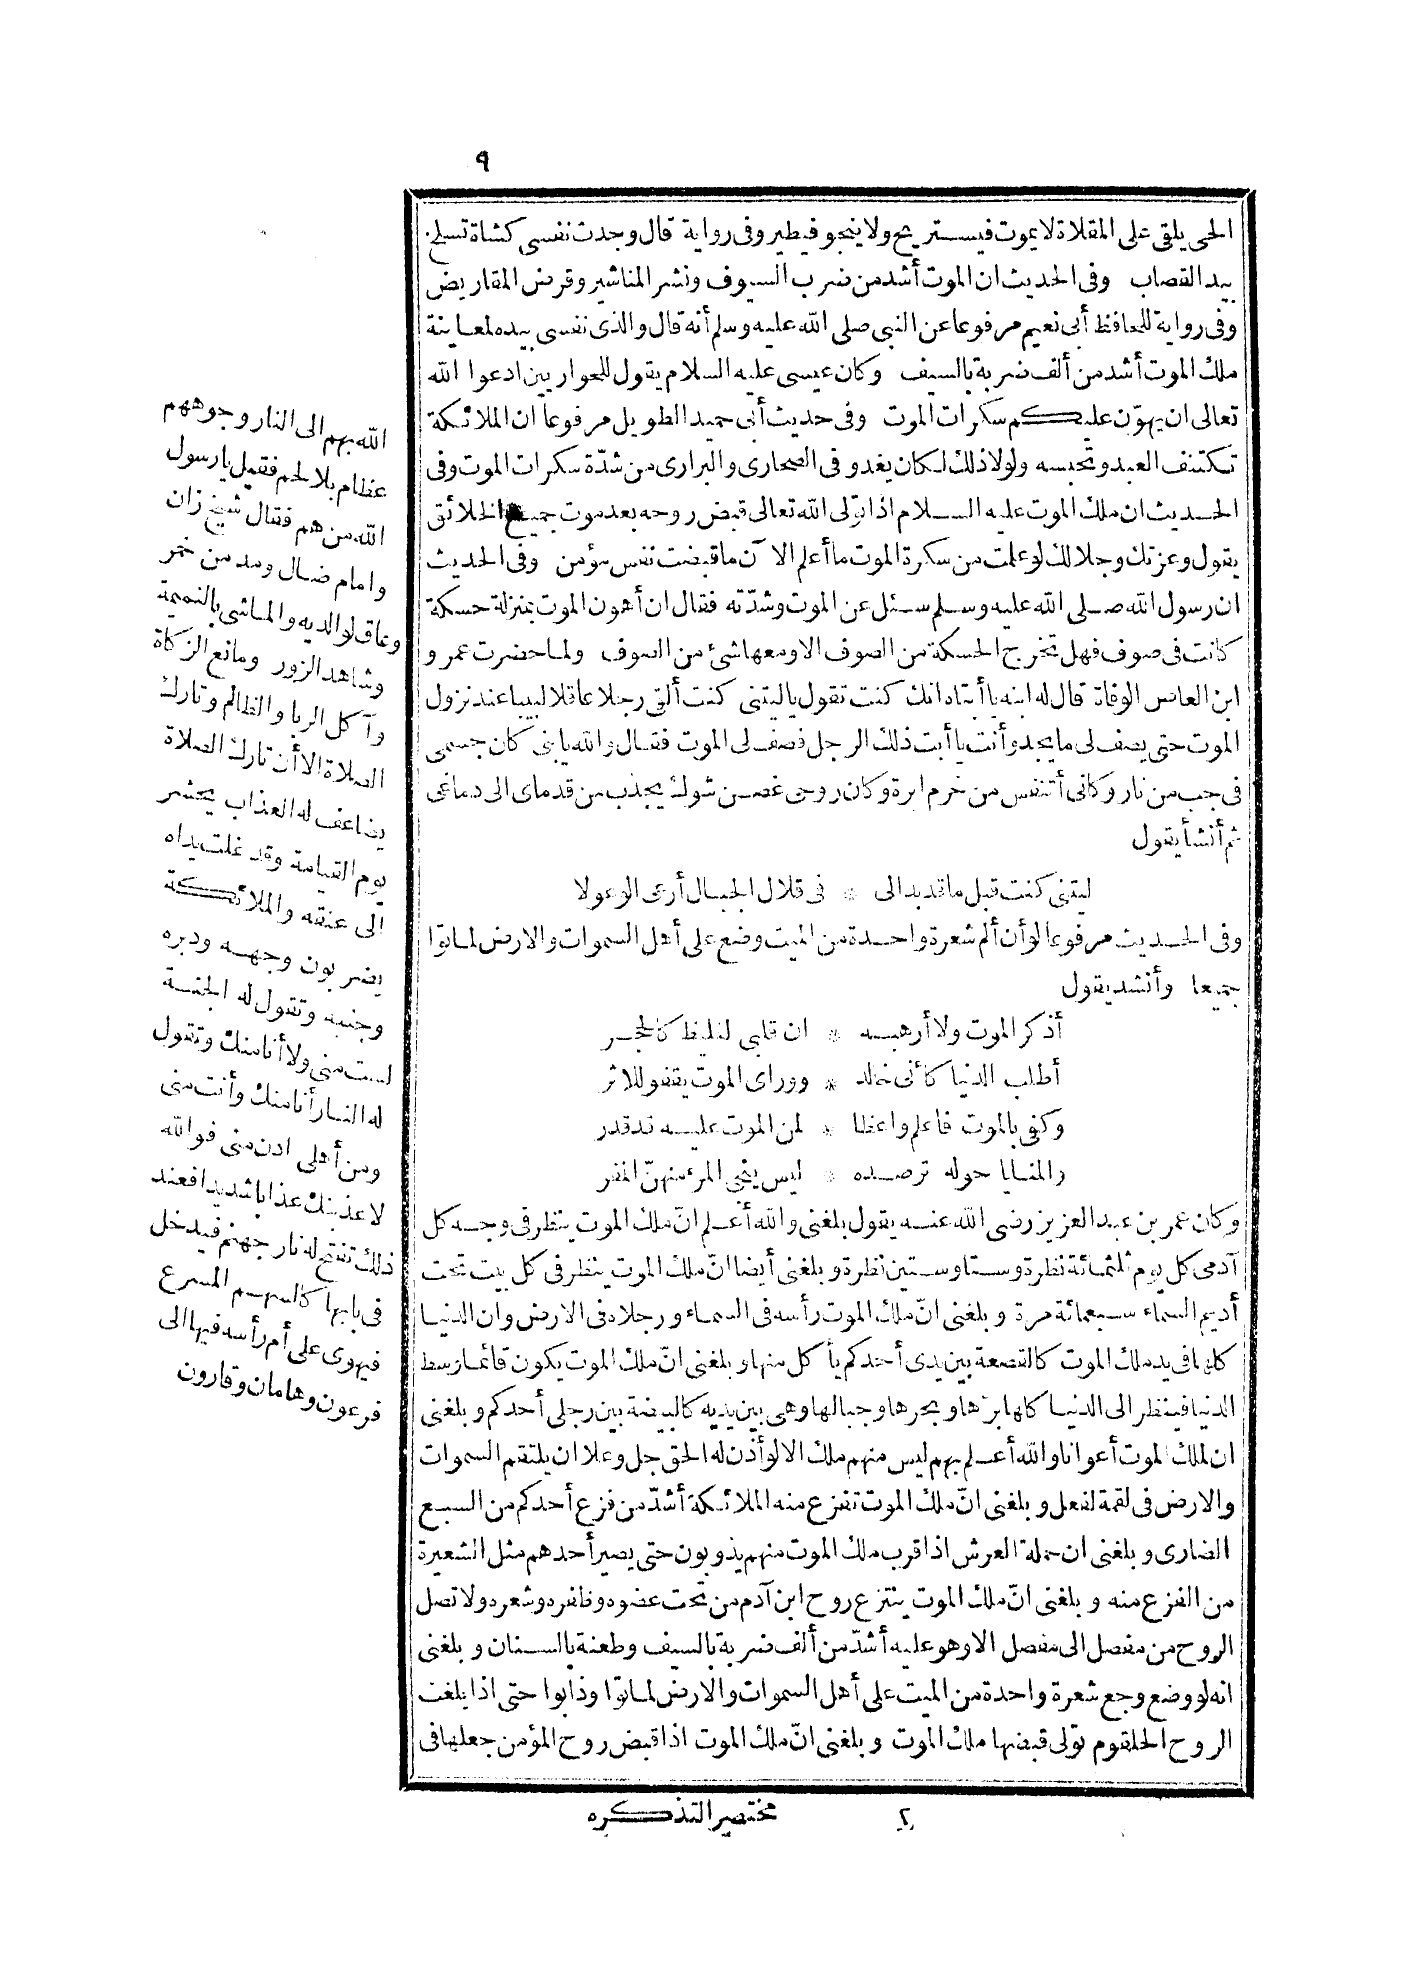 ٩
الحى يلقى على المقلاة لا يموت فيستريح ولا ينجو فيطير وفى رواية قال وجدت نفسى كشاة تسلخ
بيد القصاب وفى الحديث ان الموت أشد من ضرب السيوف ونشر المناشير وقرض المقاريض
وفى رواية للحافظ أبى نعيم مرفوعا عن النبى صلى الله عليه وسلم أنه قال والذى نفسى بيده لمعاينة
ملك الموت أشد من ألف ضربة بالسيف وكان عيسى عليه السلام يقول للحواريين ادعوا الله
تعالى ان يهوّن عليكم سكرات الموت وفى حديث أبى حميد الطويل مرفوعا ان الملائكة
تكتنف العبد وتحبسه ولولا ذلك لكان يغدو فى الصحارى والبرارى من شدّة سكرات الموت وفى
الحديث ان ملك الموت عليه السلام اذا تولى الله تعالى قبض روحه بعد موت جميع الخلائق
يقول وعزتك وجلالك لو علمت من سكرة الموت ما أعلم الآن ما قبضت نفس مؤمن وفى الحديث
ان رسول الله صلى الله عليه وسلم سئل عن الموت وشدّته فقال ان أهون الموت بمنزلة حسكة
كانت فى صوف فهل تخرج الحسكة من الصوف الا ومعها شئ من الصوف ولما حضرت عمرو
ابن العاص الوفاة قال له ابنه يا أبتاه انك كنت تقول ياليتنى كنت ألقى رجلا عاقلا لبيبا عند نزول
الموت حتى يصف لى ما يجد وأنت يا أبت ذلك الرجل فصف لى الموت فقال والله يا بنى كان جسمى
فى جب من نار وكانى أتنفس من خرم ابرة وكان روحى غصن شوك يجذب من قدماى الى دماغى
ثم أنشأ يقول
ليتنى كنت قبل ما قد بدا لى * فى قلال الجبال أرعى الوعولا
وفى الحديث مرفوعا لو أن ألم شعرة واحدة من الميت وضع على أهل السموات والارض لماتوا
جميعا وأنشد يقول
أذكر الموت ولا أرهبه * ان قلبى لغليظ كالحجر
أطلب الدنيا كأنى خالد * وورائى الموت يقفو للاثر
وكفى بالموت فاعلم واعظا * لمن الموت عليه قد قدر
والمنايا حوله ترصده * ليس ينجى المرء منهنّ المفر
وكان عمر بن عبد العزيز رضى الله عنه يقول بلغنى والله أعلم انّ ملك الموت ينظر فى وجه كل
آدمى كل يوم ثلثمائة نظرة وستا وستين نظرة وبلغنى أيضا انّ ملك الموت ينظر فى كل بيت تحت
أديم السماء سبعمائة مرة وبلغنى انّ ملك الموت رأسه فى السماء ورجلاه فى الارض وان الدنيا
كلها فى يد ملك الموت كالقصعة بين يدى أحدكم يأكل منها وبلغنى انّ ملك الموت يكون قائما وسط
الدنيا فينظر الى الدنيا كلها برّها وبحرها وجبالها وهى بين يديه كالبيضة بين رجلى أحدكم وبلغنى
ان لملك الموت أعوانا والله أعلم بهم ليس منهم ملك الا لو أذن له الحق جل وعلا ان يلتقم السموات
والارض فى لقمة لفعل وبلغنى انّ ملك الموت تفزع منه الملائكة أشدّ من فزع أحدكم من السبع
الضارى وبلغنى ان حملة العرش اذا قرب ملك الموت منهم يذوبون حتى يصير أحدهم مثل الشعيرة
من الفزع منه وبلغنى انّ ملك الموت ينتزع روح ابن آدم من تحت عضوه وظافره وشعره ولا تصل
الروح من مفصل الى مفصل الا وهو عليه أشدّ من ألف ضربة بالسيف وطعنة بالسنان وبلغنى
انه لو وضع وجع شعرة واحدة من الميت على أهل السموات والارض لماتوا وذابوا حتى اذا بلغت
الروح الحلقوم تولى قبضها ملك الموت وبلغنى انّ ملك الموت اذا قبض روح المؤمن جعلها فى
٢ مختصر التذكره
الله بهم الى النار وجوههم
عظام بلا لحم فقيل يا رسول
الله من هم فقال شيخ زان
وامام ضال ومدمن خمر
وعاق لوالديه والماشى بالنميمة
وشاهد الزور ومانع الزكاة
وآكل الربا والظالم وتارك
الصلاة الا أن تارك الصلاة
يضاعف له العذاب يحشر
يوم القيامة وقد غلت يداه
الى عنقه والملائكة
يضربون وجهه ودبره
وجنبه وتقول له الجنة
لست منى ولا أنا منك وتقول
له النار أنا منك وأنت منى
ومن أهلى ادن منى فوالله
لاعذبنك عذابا شديدا فعند
ذلك تفتح له نار جهنم فيدخل
فى بابها كالسهم المسرع
فيهوى على أم رأسه فيها الى
فرعون وهامان وقارون